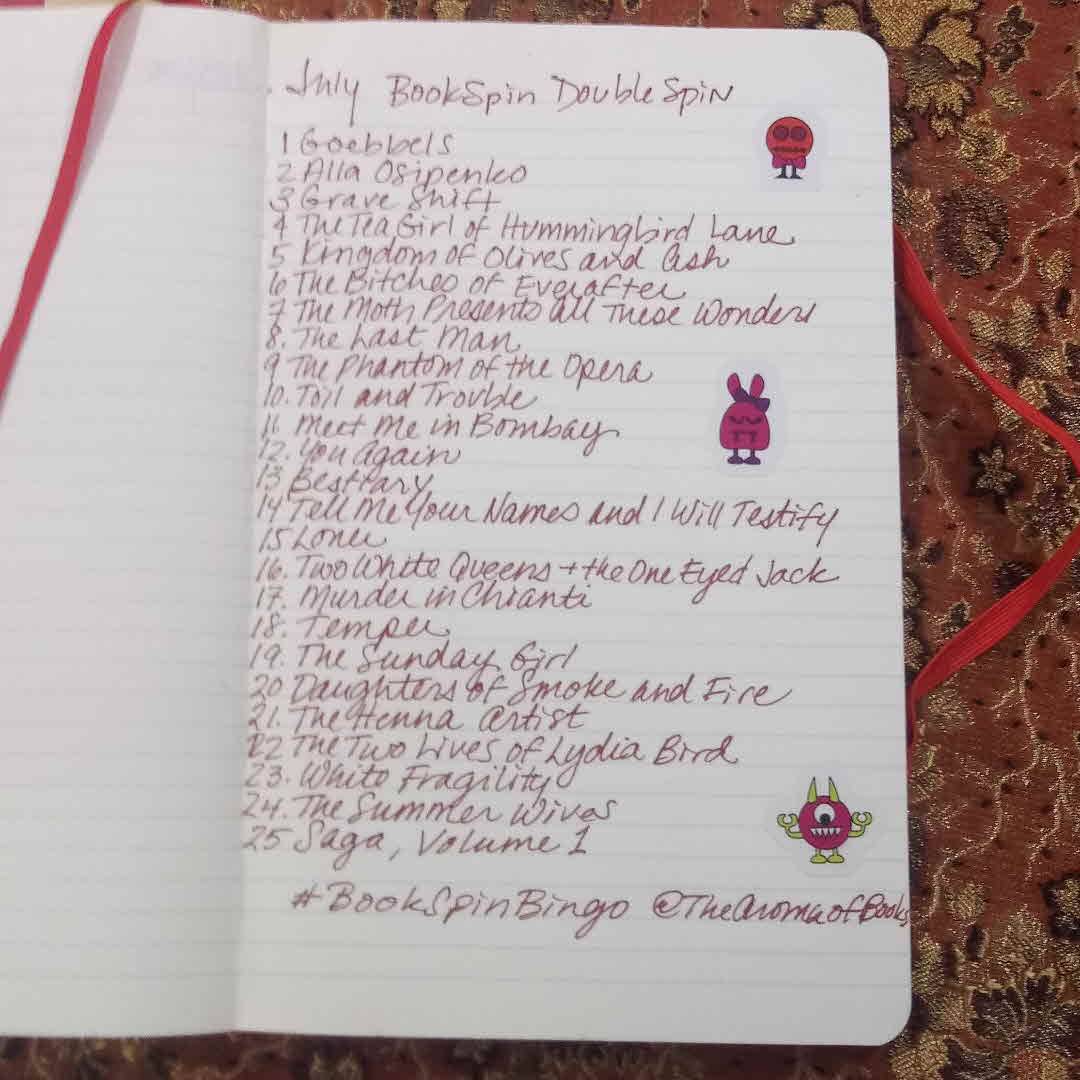 July BookSpin DoubleSpin
1 Goebbels
2 Alla Osipenko
3 Grave Shift
4 The Tea Girl of Hummingbird Lane
5 Kingdom of Olives and Ash
6 The Bitches of Everafter
7 The Moth Presents All These Wonders
8. The Last Man
9 The Phantom of the Opera
10. Toil and Trouble
11. Meet Me in Bombay
12. You Again
13 Bestiary
14 Tell Me Your Names and I Will Testify
15 Loner
16. Two White Queens + the One Eyed Jack
17. Murder in Chianti
18. Temper
19. The Sunday Girl
20 Daughters of Smoke and Fire
21. The Henna Artist
22 The Two Lives of Lydia Bird
23. White Fragility
24. The Summer Wives
25 Saga, Volume 1
#BookSpinBingo @TheAromaofBooks